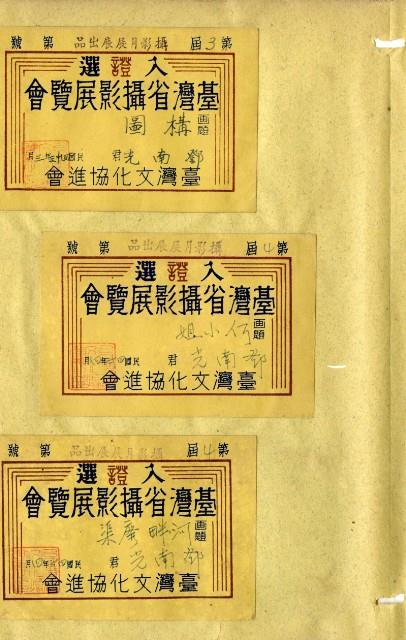 第3屆 攝影月展展出品 第 號
入證選
臺灣省攝影展覽會
画題 構圖
鄧南光 君 民國
臺灣文化協進會
第4屆 攝影月展展出品 第 號
入證選
臺灣省攝影展覽會
画題 何小姐
鄧南光 君 民國
臺灣文化協進會
第4屆 攝影月展展出品 第 號
入證選
臺灣省攝影展覽會
画題 河畔
鄧南光 君 民國
臺灣文化協進會